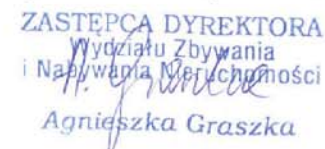 ZASTĘPCA DYREKTORA
Wydziału Zbywania
i Nabywania Nieruchomości
Agnieszka Graszka